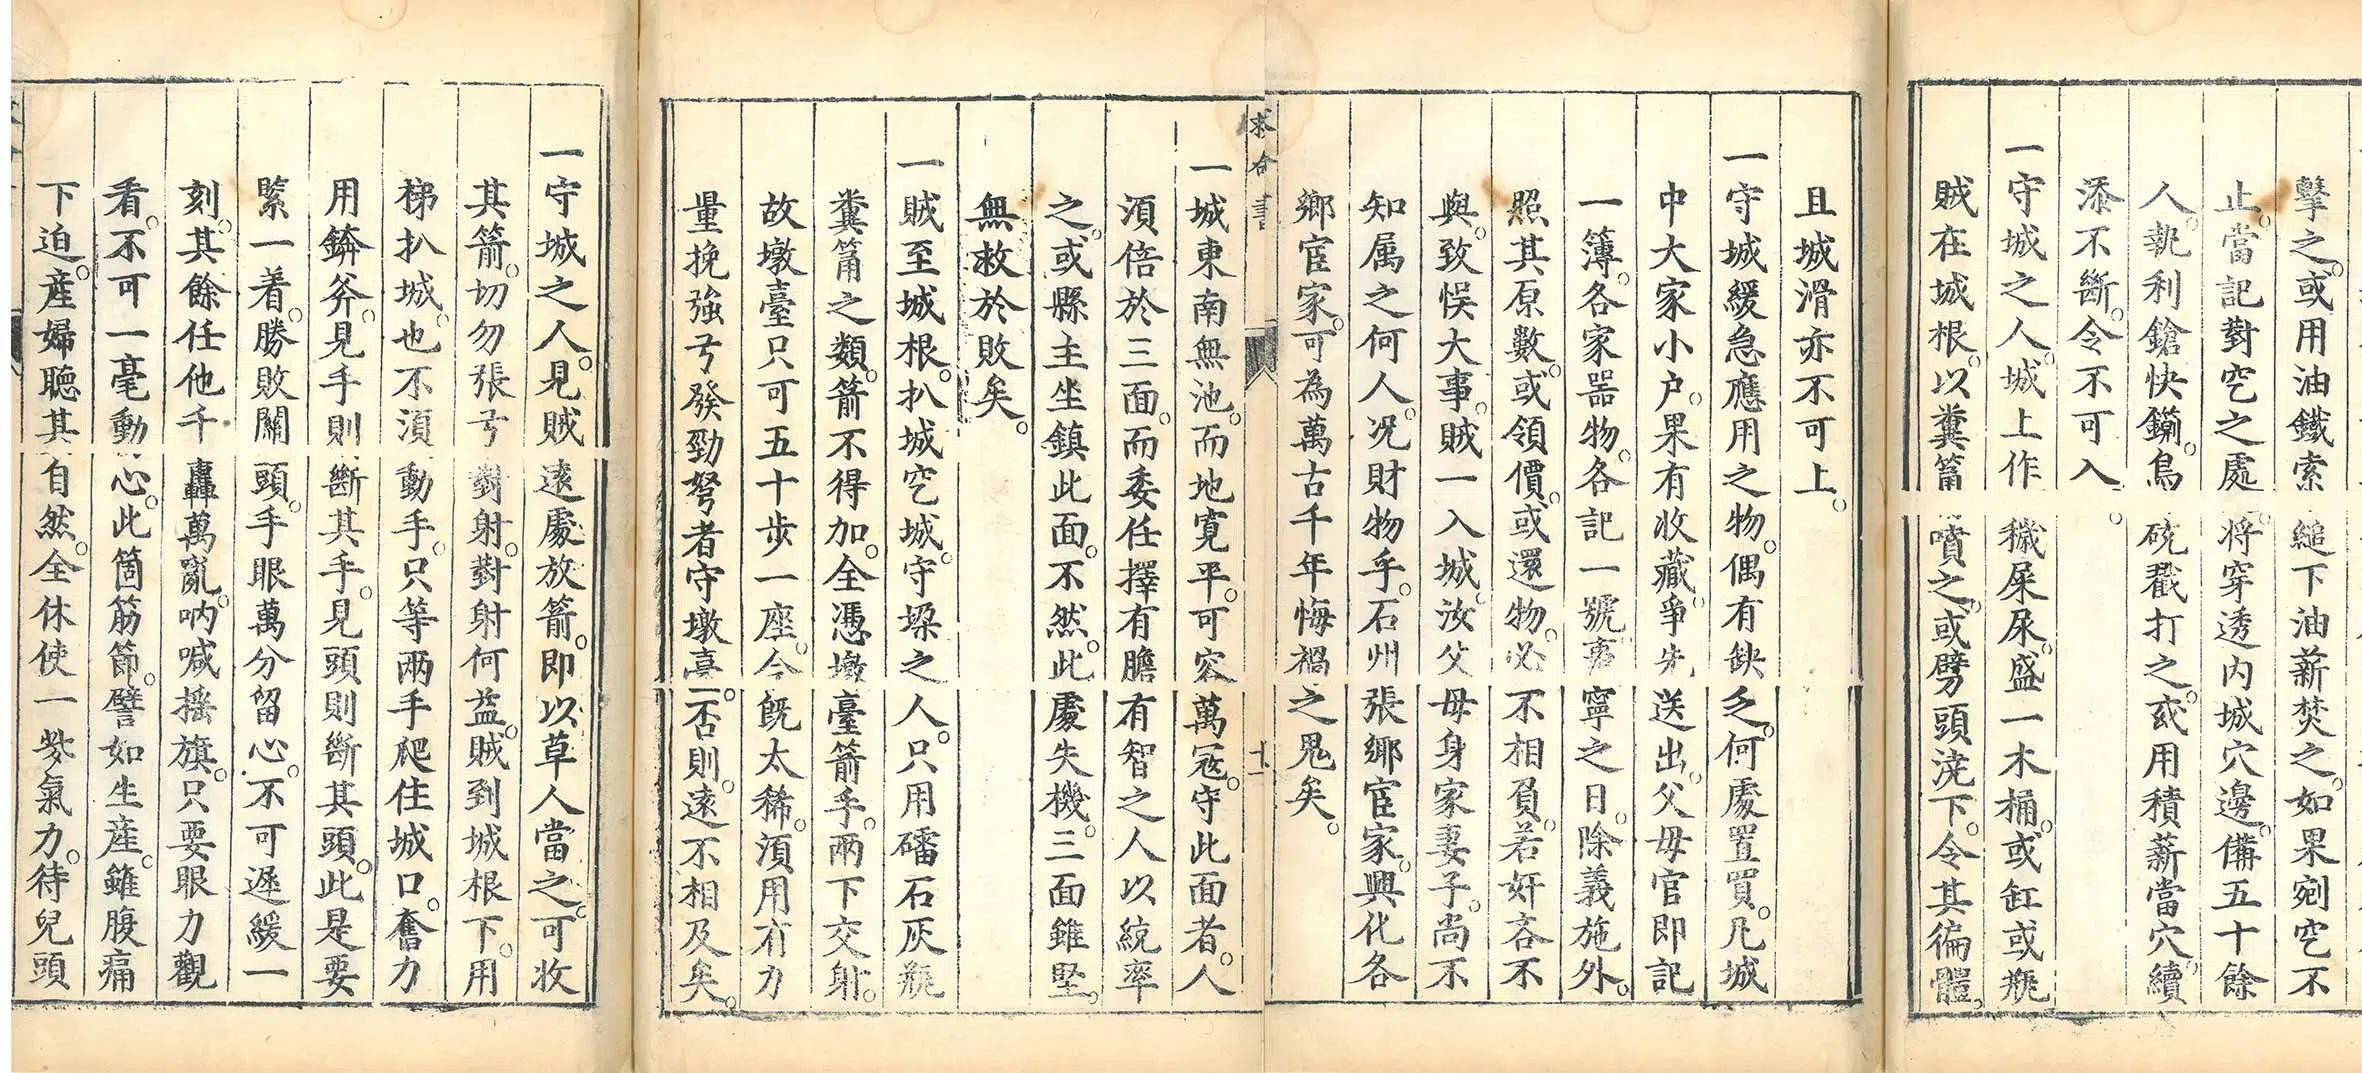 擊之。或用油鐵索縋下油薪焚之。如果剜空不
止。當記對空之處。將穿透內城穴邊。備五十餘
人。執利鎗快鐗。鳥銃戳打之。或用積薪當穴。續
添不斷。令不可入。
一守城之人。城上作穢屎尿。盛一木桶。或缸或瓶。
賊在城根。以糞篙噴之。或劈頭澆下。令其徧體。
且城滑亦不可上。
一守城緩急應用之物。偶有缺乏。何處置買。凡城
中大家小户。果有收藏。爭先送出。父母官即記
一簿。各家器物。各記一號。事寧之日。除義施外。
照其原數。或領價。或還物。必不相負。若奸吝不
與。致悞大事。賊一入城。汝父母身家妻子。尚不
知属之何人。况財物乎。石州張鄉宦家。興化各
鄉宦家。可為萬古千年悔禍之鬼矣。
救命書
十一
一城東南無池。而地寬平。可容萬冦。守此面者。人
湏倍於三面。而委任擇有膽有智之人以統率
之。或縣主坐鎮此面。不然。此處失機。三面雖堅。
無救於敗矣。
一賊至城根。扒城空城。守垜之人。只用礌石灰瓶
糞篙之類。箭不得加。全憑墩臺箭手。兩下交射。
故墩臺只可五十步一座。今既太稀。湏用有力
量挽強弓發勁弩者守墩臺。否則。遠不相及矣。
一守城之人。見賊遠處放箭。即以草人當之。可收
其箭。切勿張弓對射。對射何益。賊到城根下。用
梯扒城。也不湏動手。只等兩手爬住城口。奮力
用錛斧。見手則斷其手。見頭則斷其頭。此是要
緊一着。勝敗關頭。手眼萬分留心。不可遲緩一
刻。其餘任他千轟萬亂。吶喊摇旗。只要眼力觀
看。不可一毫動心。此箇筋節。譬如生産。雖腹痛
下迫。産婦聽其自然。全休使一些氣力。待兒頭